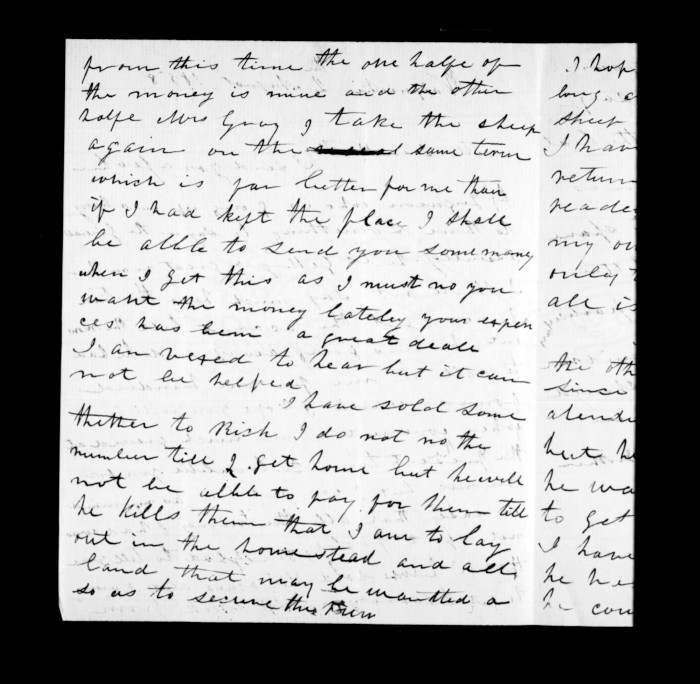 from this time the one halfe of
the money is mine and the other
halfe Mrs Gray I take the sheep
again on the same term
which is far better for me than
if I had kept the place I shall
be allble to send you some money
when I get this as I must no you
want the money lateley your expen
ces has bein a great deall
I am vexed to hear but it can
not be helped
I have sold some
to Rich I do not no the
number till I get home but he will
not be allble to pay for them till
he kills them that I am to lay
out in the home stead and all
land that may be wantted
so as to secure the Run
I hop
long
sheet
I hav
return
reade
my ou
only t
all is
the oth
since
atende
but he
he wa
to get
I have
he has
he cou